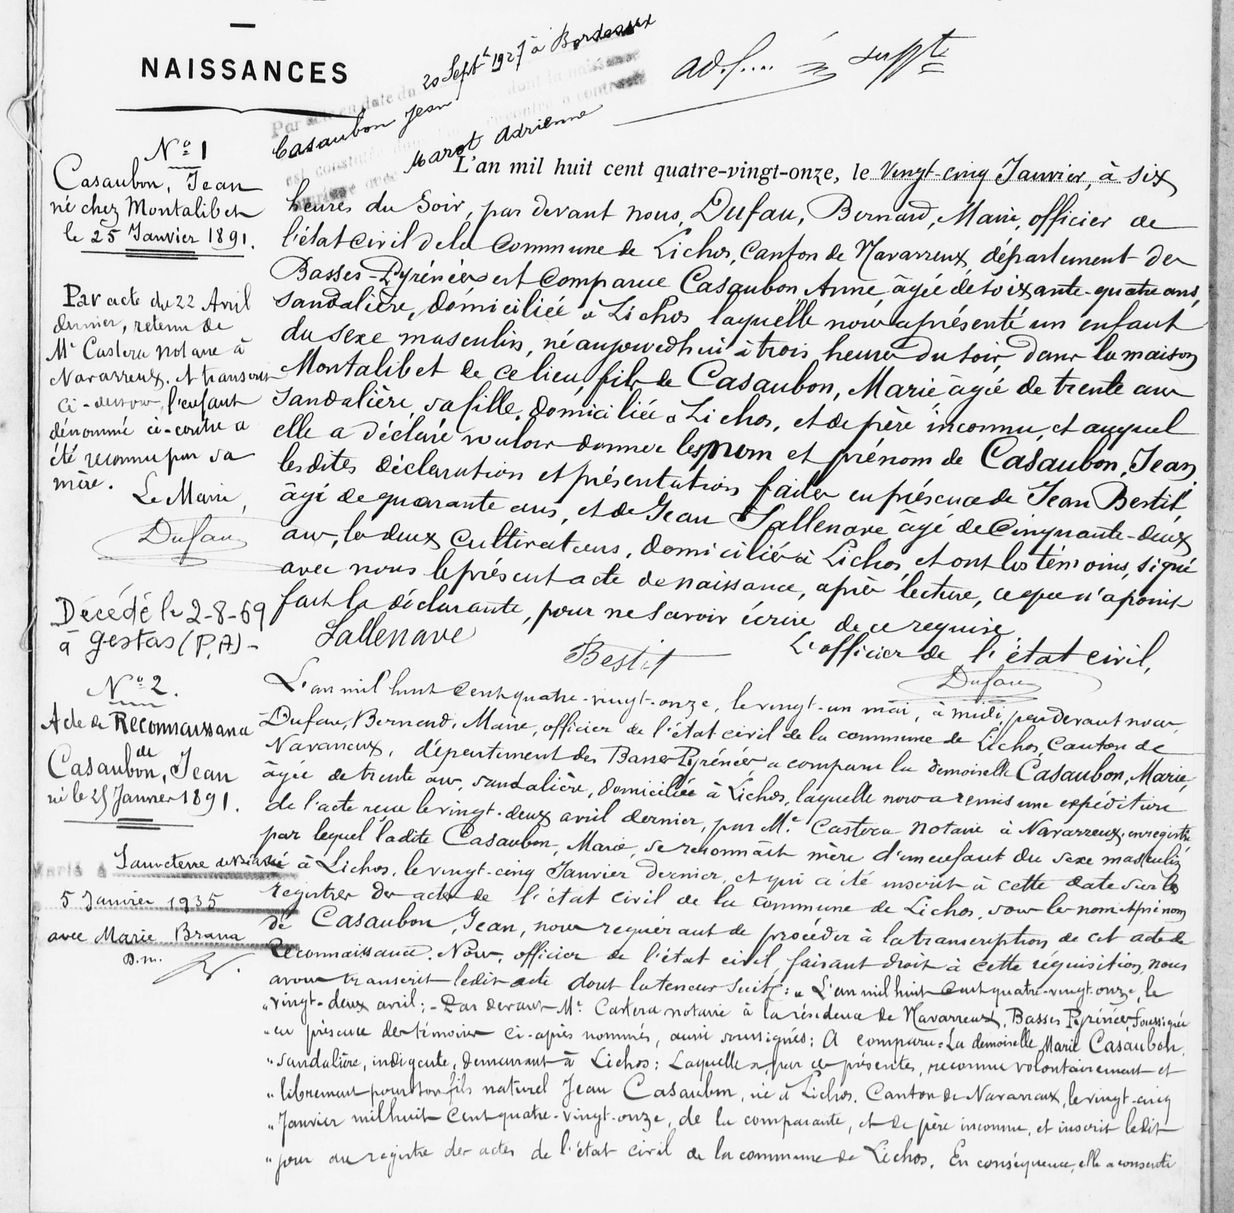 NAISSANCES
20 Sept. 1927 à Bordeaux
Casaubon Jean
Marot Adrienne
N° 1
Casaubon, Jean
né chez Montalibet
le 25 Janvier 1891.
Par acte du 22 Avril
dernier, retenu de
Mr Castera notaire à
Navarrenx, et transcrit
ci-dessous, l'enfant
dénommé ci-contre a
été reconnu par sa
mère.
Le Maire,
Dufau
Décédé le 2-8-69
à Gestas (P.A) -
L'an mil huit cent quatre-vingt-onze, le Vingt-cinq Janvier, à six
heures du Soir, par devant nous, Dufau, Bernard, Maire, officier de
l'état civil de la Commune de Lichos, canton de Navarrenx, département des
Basses-Pyrénées est comparue Casaubon Anne, âgée de soixante-quatre ans,
sandalière, domiciliée à Lichos laquelle nous a présenté un enfant
du sexe masculin, né aujourd'hui à trois heures du soir, dans la maison
Montalibet de ce lieu fils de Casaubon, Marie âgée de trente ans
Sandalière, sa fille, domiciliée à Lichos, et de père inconnu, et auquel
elle a déclaré vouloir donner les nom et prénom de Casaubon, Jean,
lesdites déclaration et présentation faites en présence de Jean Bestit,
âgé de quarante ans, et de Jean Sallenave âgé de Cinquante-deux
ans, les deux Cultivateurs, domiciliés à Lichos, et ont les témoins, signé
avec nous le présent acte de naissance, après lecture, ce que n'a point
fait la déclarante, pour ne savoir écrire de ce requise
Sallenave Bestit L'officier de l'état civil,
Dufau
N° 2.
Acte de Reconnaissance
de
Casaubon, Jean
né le 25 Janvier 1891.
Marié à Sauveterre de Béarn
5 Janvier 1935
avec Marie Brana
D.m.
L'an mil huit cent quatre-vingt-onze, le vingt-un mai, à midi, par devant nous
Dufau, Bernard, Maire, officier de l'état civil de la commune de Lichos, Canton de
Navarrenx, département des Basses Pyrénées a comparu la demoiselle Casaubon, Marie,
âgée de trente ans, sandalière, domiciliée à Lichos, laquelle nous a remis une expédition
de l'acte reçu le vingt-deux avril dernier, par Me. Castera notaire à Navarrenx, enregistré
par lequel ladite Casaubon, Marie, se reconnaît mère d'un enfant du sexe masculin
né à Lichos, le vingt-cinq Janvier dernier, et qui a été inscrit à cette date sur les
registres des actes de l'état civil de la commune de Lichos, sous les nom et prénom
de Casaubon, Jean, nous requérant de procéder à la transcription de cet acte de
Reconnaissance. Nous, officier de l'état civil, faisant droit à cette réquisition, nous
avons transcrit ledit acte dont la teneur suit: „ L'an mil huit cent quatre-vingt-onze, le
„ vingt-deux avril; - Par devant Me. Castera notaire à la résidence de Navarrenx, Basses Pyrénées, soussigné
„ en présence des témoins ci-après nommés, aussi soussignés: A comparu: La demoiselle Marie Casaubon,
„ sandalière, indigente, demeurant à Lichos: Laquelle a, par ces présentes, reconnu volontairement et
„ librement pour son fils naturel Jean Casaubon, né à Lichos, Canton de Navarrenx, le vingt-cinq
„ Janvier mil huit cent quatre-vingt-onze, de la comparante, et de père inconnu, et inscrit ledit
„ jour au registre des actes de l'état civil de la commune de Lichos. En conséquence, elle a consenti